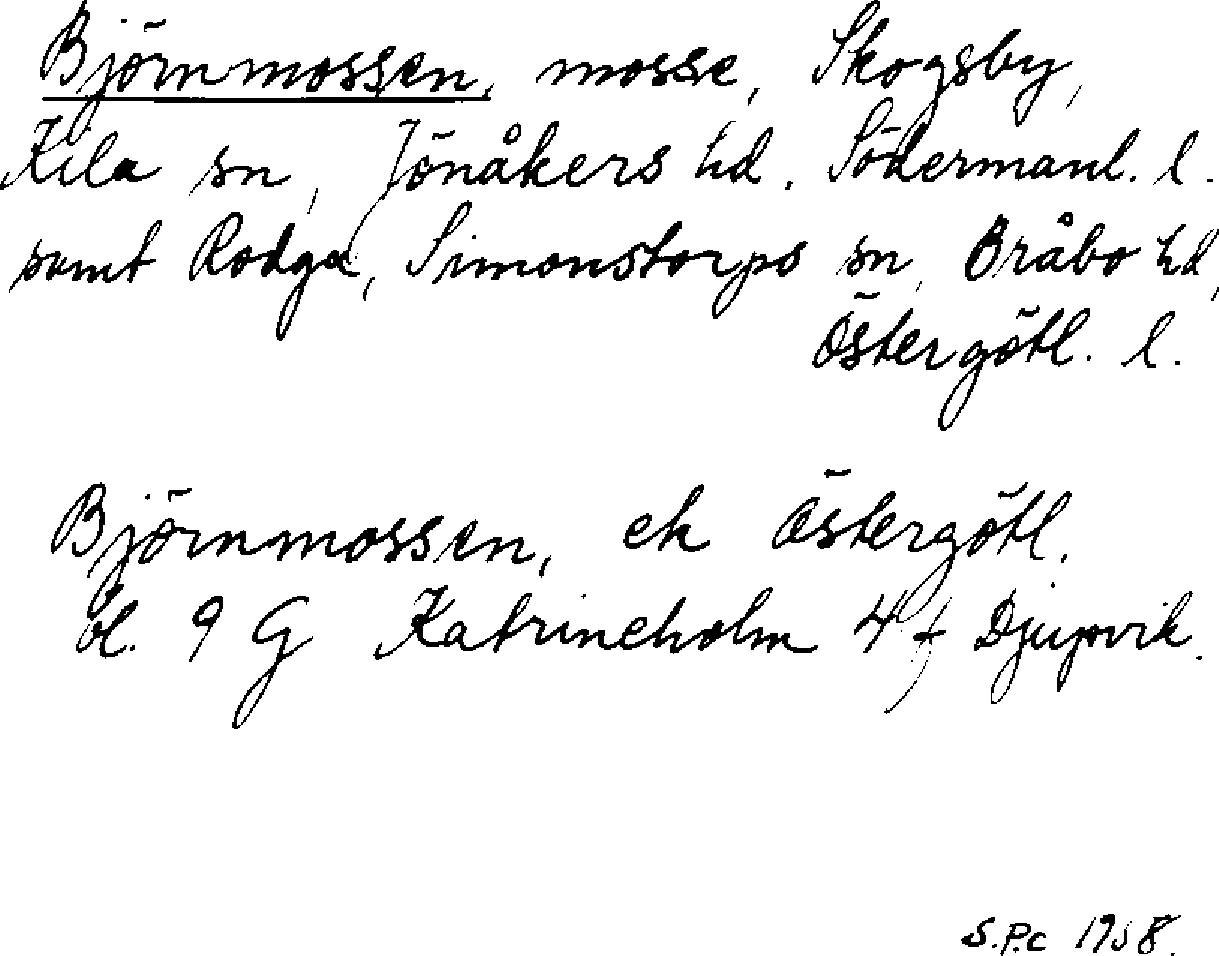 Björnmossen, mosse, Skogsby,
Kila sn, Jönåkers hd. Södermanl. l.
samt Rodga, Simonstorps sn, Bråbo hd,
Östergötl. l.
Björnmossen, ek Östergötl.
bl. 9 G Katrineholm 4 f Djupvik.
S.P.c 1958.